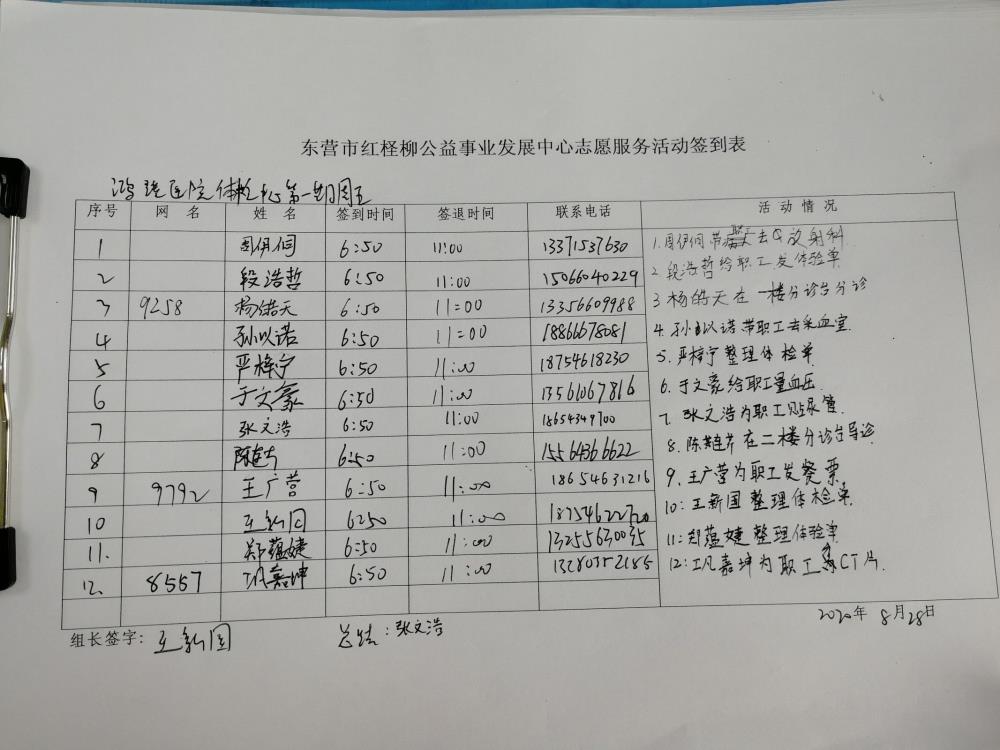 东营市红柽柳公益事业发展中心志愿服务活动签到表
鸿港医院体检中心第一期周五
序号 网名 姓名 签到时间 签退时间 联系电话 活动情况
1 周伊伺 6:50 11:00 13371537630
2 段浩哲 6:50 11:00 15066040229
3 9258 杨皓天 6:50 11:00 13356609988
4 孙以诺 6:50 11:00 18866678081
5 严梓宁 6:50 11:00 18754618230
6 于文豪 6:50 11:00 13561067816
7 张文浩 6:50 11:00 18654349700
8 6:50 11:00 15564366622
9 9792 王广营 6:50 11:00 18654631216
10 王新国 6:50 11:00
11. 郑蕴婕 6:50 11:00 13255630035
12. 8557 巩嘉坤 6:50 11:00
1.周伊伺带职工去放射科
2.段浩哲给职工发体验单
3 杨皓天在一楼分诊台分诊
4.孙以诺带职工去采血室.
5.严梓宁整理体检单
6.于文豪给职工量血压
7.张文浩为职工贴尿管.
8.在二楼分诊台导诊
9.王广营为职工发餐票.
10:王新国整理体检单
11:郑蕴婕整理体验单
12:巩嘉坤为职工CT片.
组长签字: 王新国
总结:张文浩
2020年 8月28日